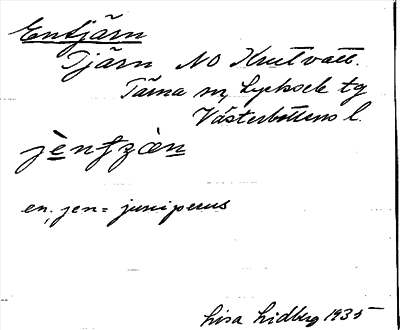 Entjärn
Tjärn NO Krutvatt.
Tärna sn, Lycksele tg
Västerbottens l.
en, jen = juniperus
Lisa Lidberg 1935